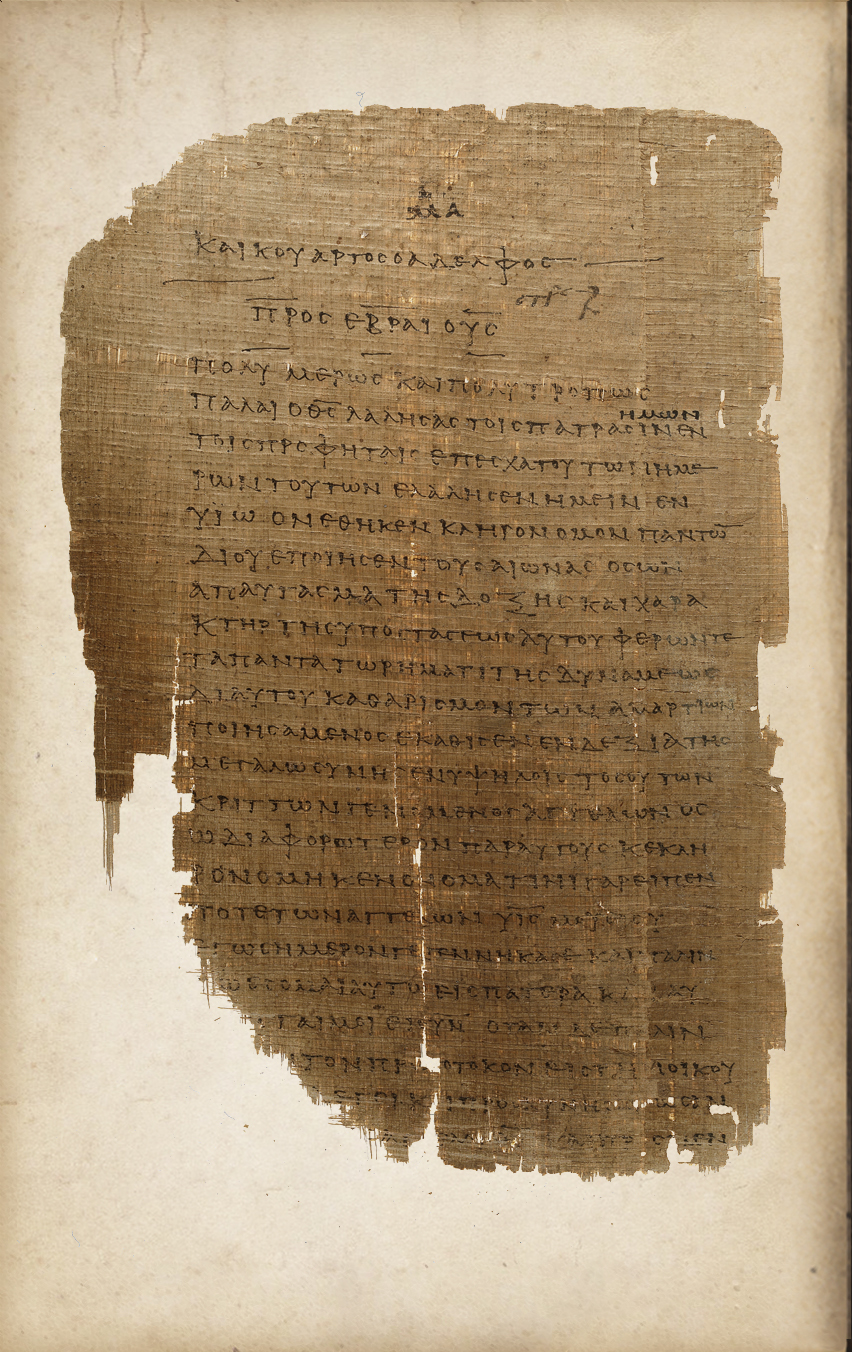 ΜΑ
ΚΑΙ ΚΟΥΑΡΤΟΣ Ο ΑΔΕΛΦΟΣ
ΠΡΟΣ ΕΒΡΑΙΟΥΣ
ΠΟΛΥΜΕΡΩΣ ΚΑΙ ΠΟΛΥΤΡΟΠΩΣ
ΗΜΩΝ
ΠΑΛΑΙ Ο ΘΣ ΛΑΛΗΣΑΣ ΤΟΙΣ ΠΑΤΡΑΣΙΝ ΕΝ
ΤΟΙΣ ΠΡΟΦΗΤΑΙΣ ΕΠ ΕΣΧΑΤΟΥ ΤΩΝ ΗΜΕ
ΡΩΝ ΤΟΥΤΩΝ ΕΛΑΛΗΣΕΝ ΗΜΕΙΝ ΕΝ
ΥΙΩ ΟΝ ΕΘΗΚΕΝ ΚΛΗΡΟΝΟΜΟΝ ΠΑΝΤΩ̅
ΔΙ ΟΥ ΕΠΟΙΗΣΕΝ ΤΟΥΣ ΑΙΩΝΑΣ ΟΣ ΩΝ
ΑΠΑΥΓΑΣΜΑ ΤΗΣ ΔΟΞΗΣ ΚΑΙ ΧΑΡΑ
ΚΤΗΡ ΤΗΣ ΥΠΟΣΤΑΣΕΩΣ ΑΥΤΟΥ ΦΕΡΩΝ ΤΕ
ΤΑ ΠΑΝΤΑ ΤΩ ΡΗΜΑΤΙ ΤΗΣ ΔΥΝΑΜΕΩΣ
ΔΙ ΑΥΤΟΥ ΚΑΘΑΡΙΣΜΟΝ ΤΩΝ ΑΜΑΡΤΙΩΝ
ΠΟΙΗΣΑΜΕΝΟΣ ΕΚΑΘΙΣΕΝ ΕΝ ΔΕΞΙΑ ΤΗΣ
ΜΕΓΑΛΩΣΥΝΗΣ ΕΝ ΥΨΗΛΟΙΣ ΤΟΣΟΥΤΩΝ
ΚΡΙΤΤΩΝ ΓΕΝΟΜΕΝΟΣ ΑΓΓΕΛΩΝ ΟΣ
Ω ΔΙΑΦΟΡΩΤΕΡΟΝ ΠΑΡ ΑΥΤΟΥΣ ΚΕΚΛΗ
ΡΟΝΟΜΗΚΕΝ ΟΝΟΜΑ ΤΙΝΙ ΓΑΡ ΕΙΠΕΝ
ΠΟΤΕ ΤΩΝ ΑΓΓΕΛΩΝ ΥΙΣ ΜΟΥ ΕΙ ΣΥ
ΕΓΩ ΣΗΜΕΡΟΝ ΓΕΓΕΝΝΗΚΑ ΣΕ ΚΑΙ ΠΑΛΙΝ
ΕΙΣ ΠΑΤΕΡΑ
ΤΟΝ ΠΡΩΤΟΤΟΚΟΝ